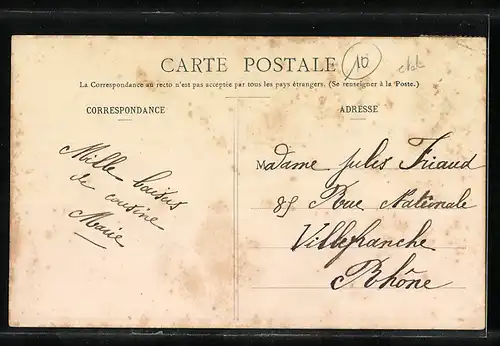 CARTE POSTALE
10
La Correspondance au recto n'est pas acceptée par tous les pays étrangers. (Se renseigner à la Poste.)
CORRESPONDANCE
ADRESSE
Mille baisers
de cousine
Marie
Madame Jules Friaud
85 Rue Nationale
Villefranche
Rhône